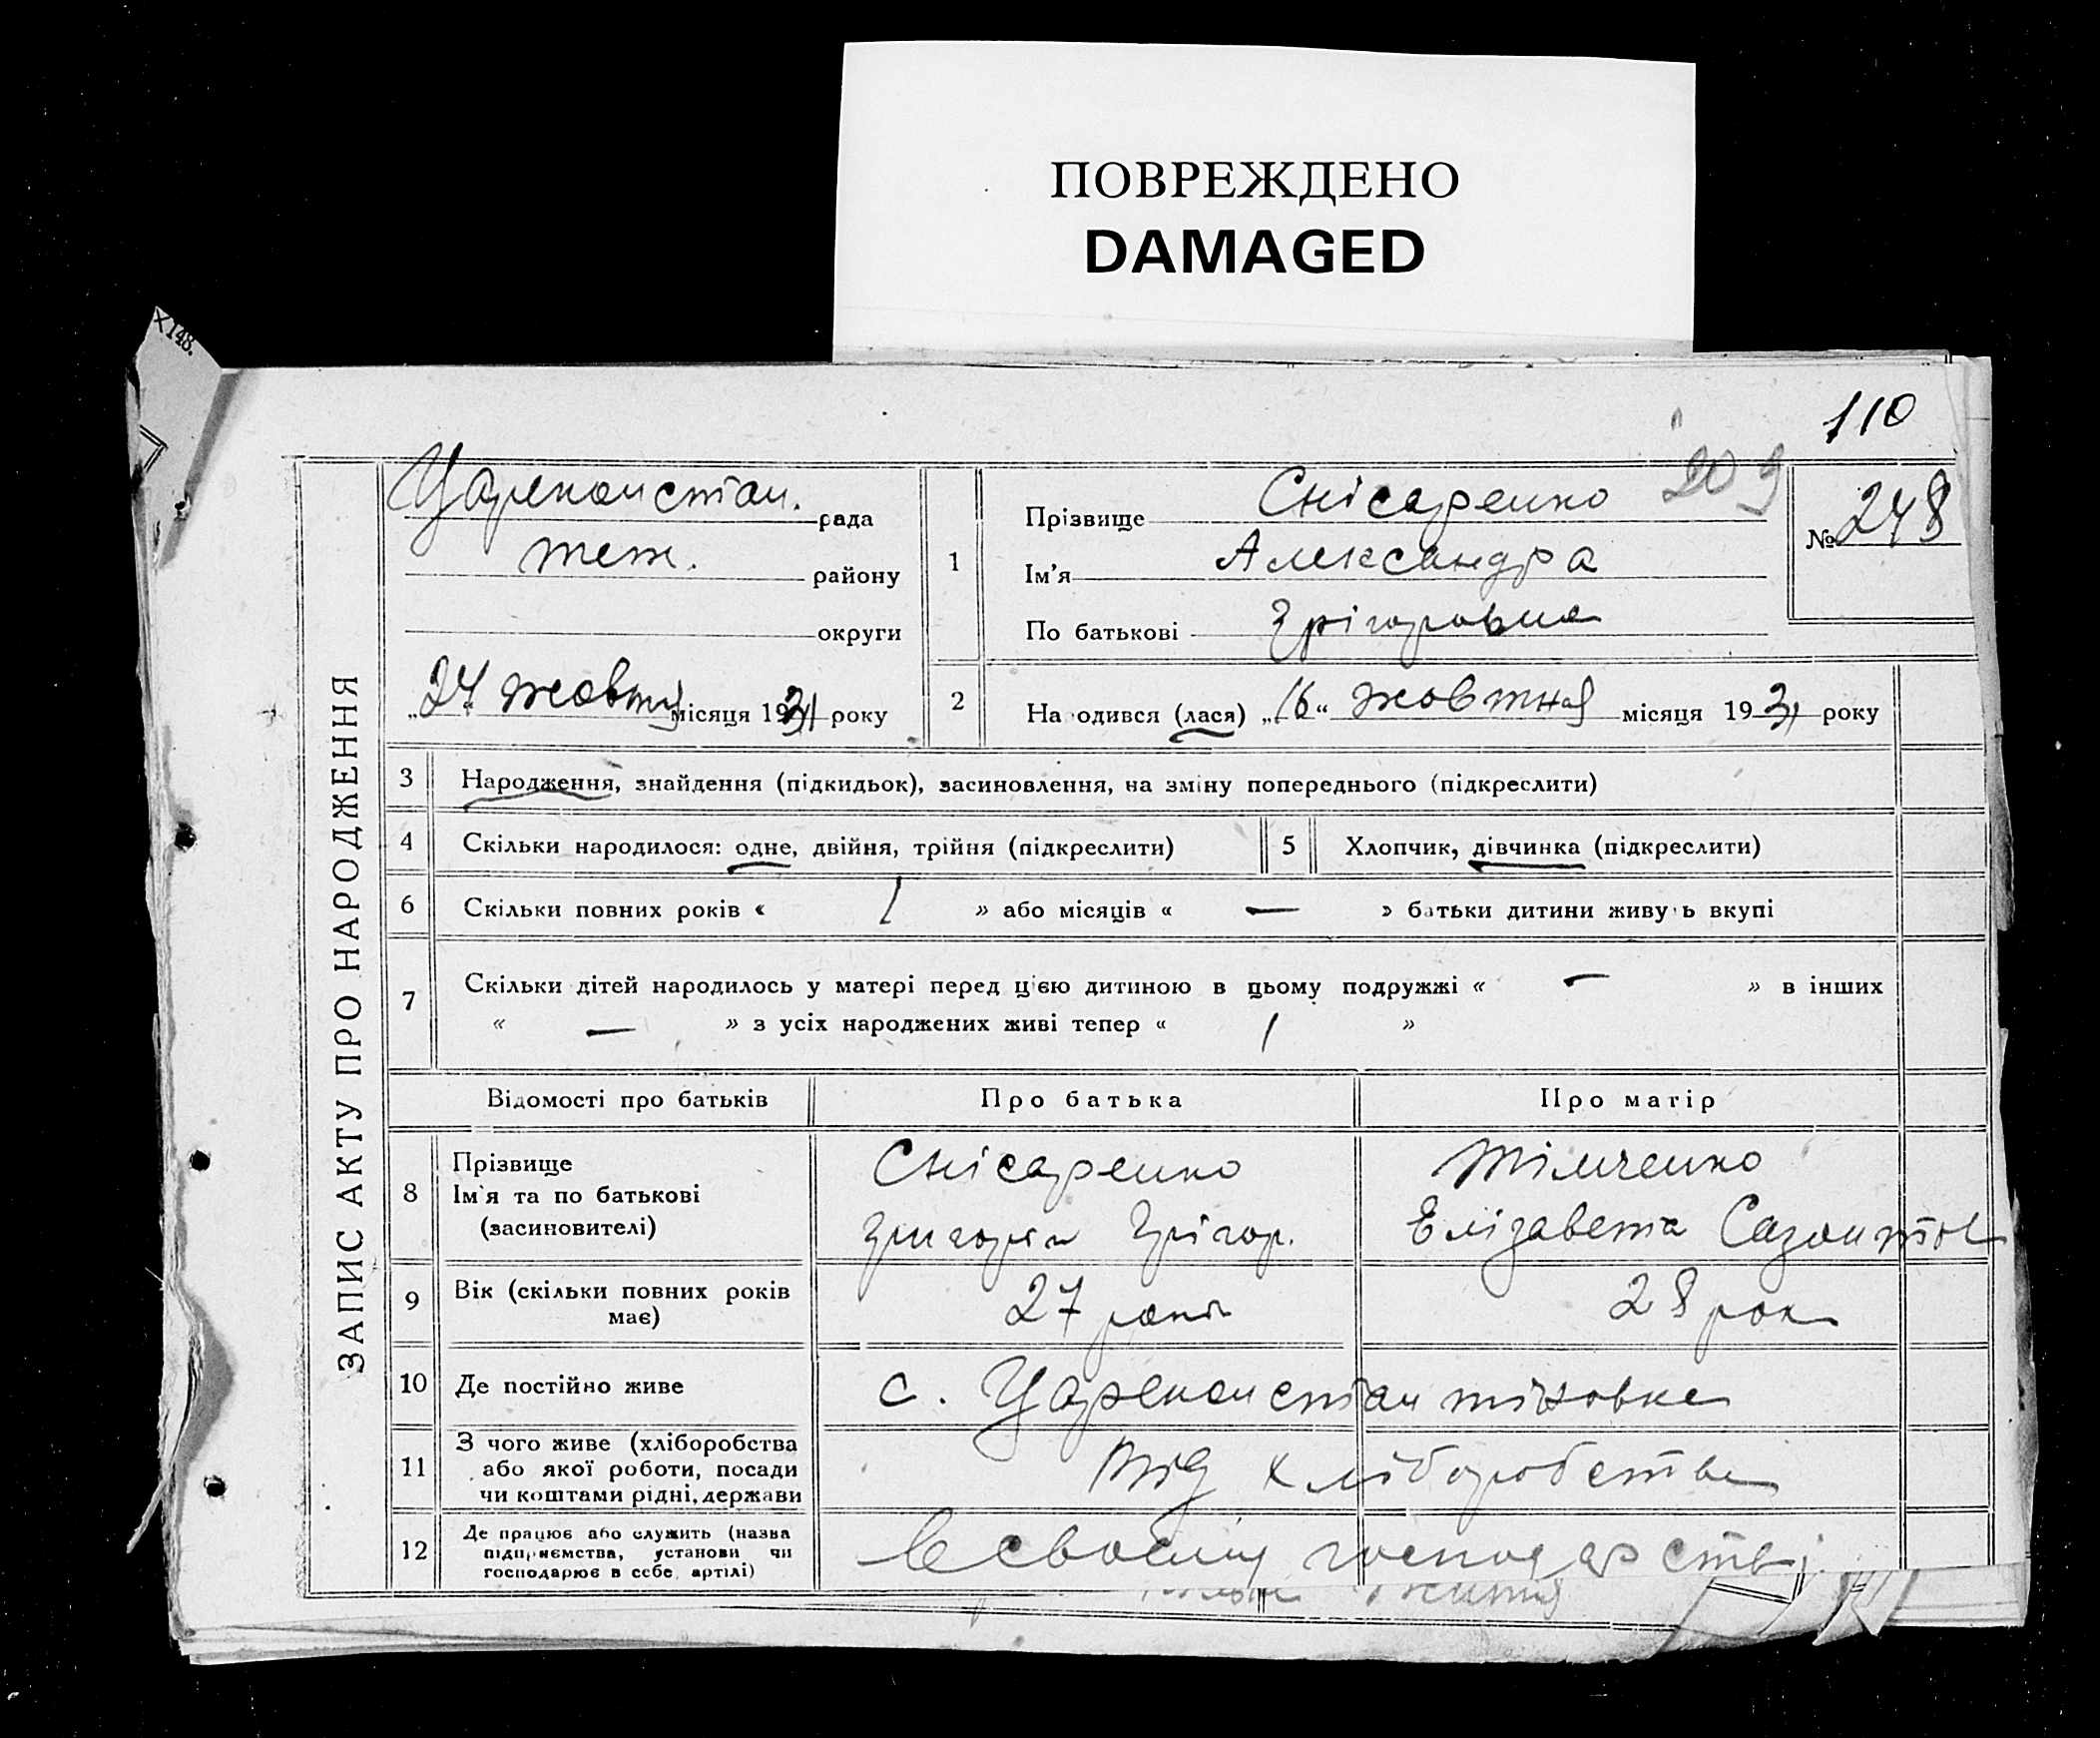 ПОВРЕЖДЕНО
DAMAGED
148.
110
209
№ 248
ЗАПИС АКТУ ПРО НАРОДЖЕННЯ
Цареконстан. рада
теж. району
округи
„24“ жовтня місяця 1931 року
1
Прізвище Снісаренко
Ім'я Александра
По батькові Грігоровна
2 На одився (лася) „16“ жовтня місяця 1931 року
3 Народження, знайдення (підкидьок), засиновлення, на зміну попереднього (підкреслити)
4 Скільки народилося: одне, двійня, трійня (підкреслити) 5 Хлопчик, дівчинка (підкреслити)
6 Скільки повних років « 1 » або місяців « — » батьки дитини живу ь вкупі
7 Скільки дітей народилось у матері перед цією дитиною в цьому подружжі « — » в інших
« — » з усіх народжених живі тепер « 1 »
Відомості про батьків Про батька Про матір
8 Прізвище Снісаренко Тімченко
Ім'я та по батькові
(засиновителі) Григорій Грігор. Елізавета Сазонтов
9 Вік (скільки повних років має) 27 років 28 рок
10 Де постійно живе с. Цареконстантіновка
11 З чого живе (хліборобства
або якої роботи, посади
чи коштами рідні, держави
від хліборобства
12 Де працює або служить (назва
підприємства, установи чи
господарює в себе, артілі)
в своєму господарстві.